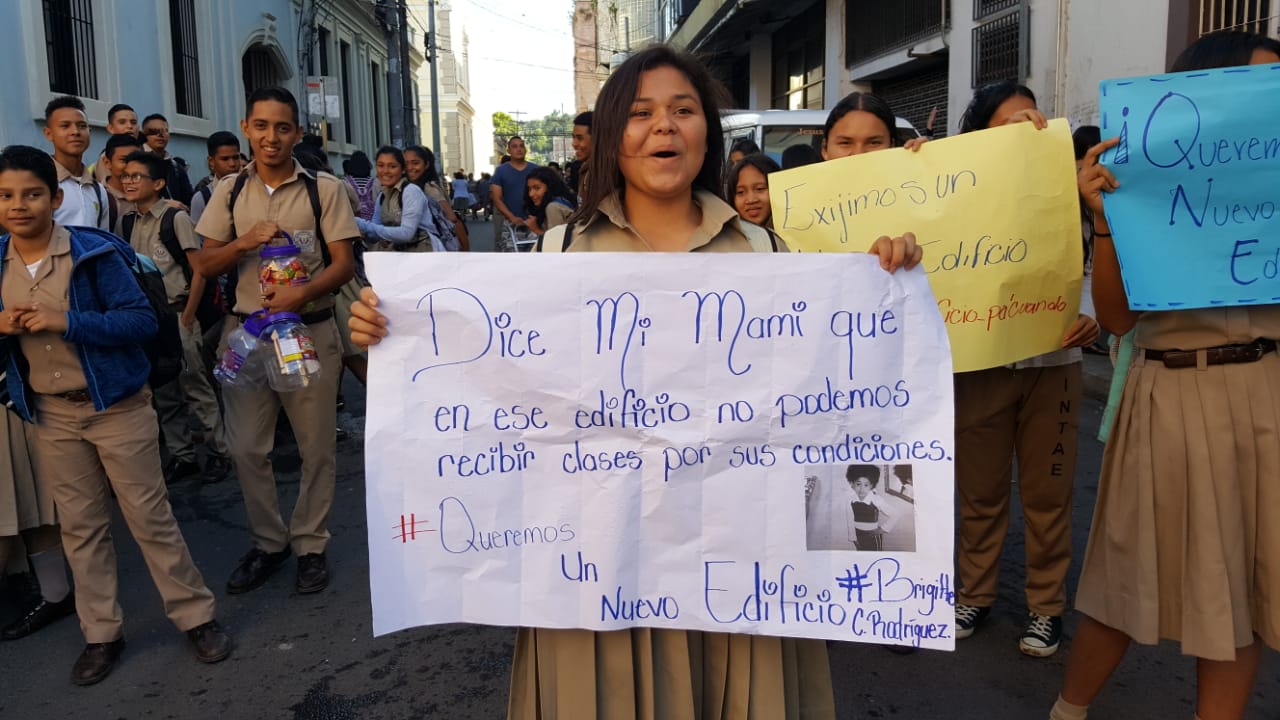 Dice Mi Mami que
en ese edificio no podemos
recibir clases por sus condiciones.
#Queremos
Un
Nuevo Edificio
#Brigitte
C. Rodríguez.
Exijimos un
Edificio
¡Querem
Nuevo
Ed
INTAE
Jesus